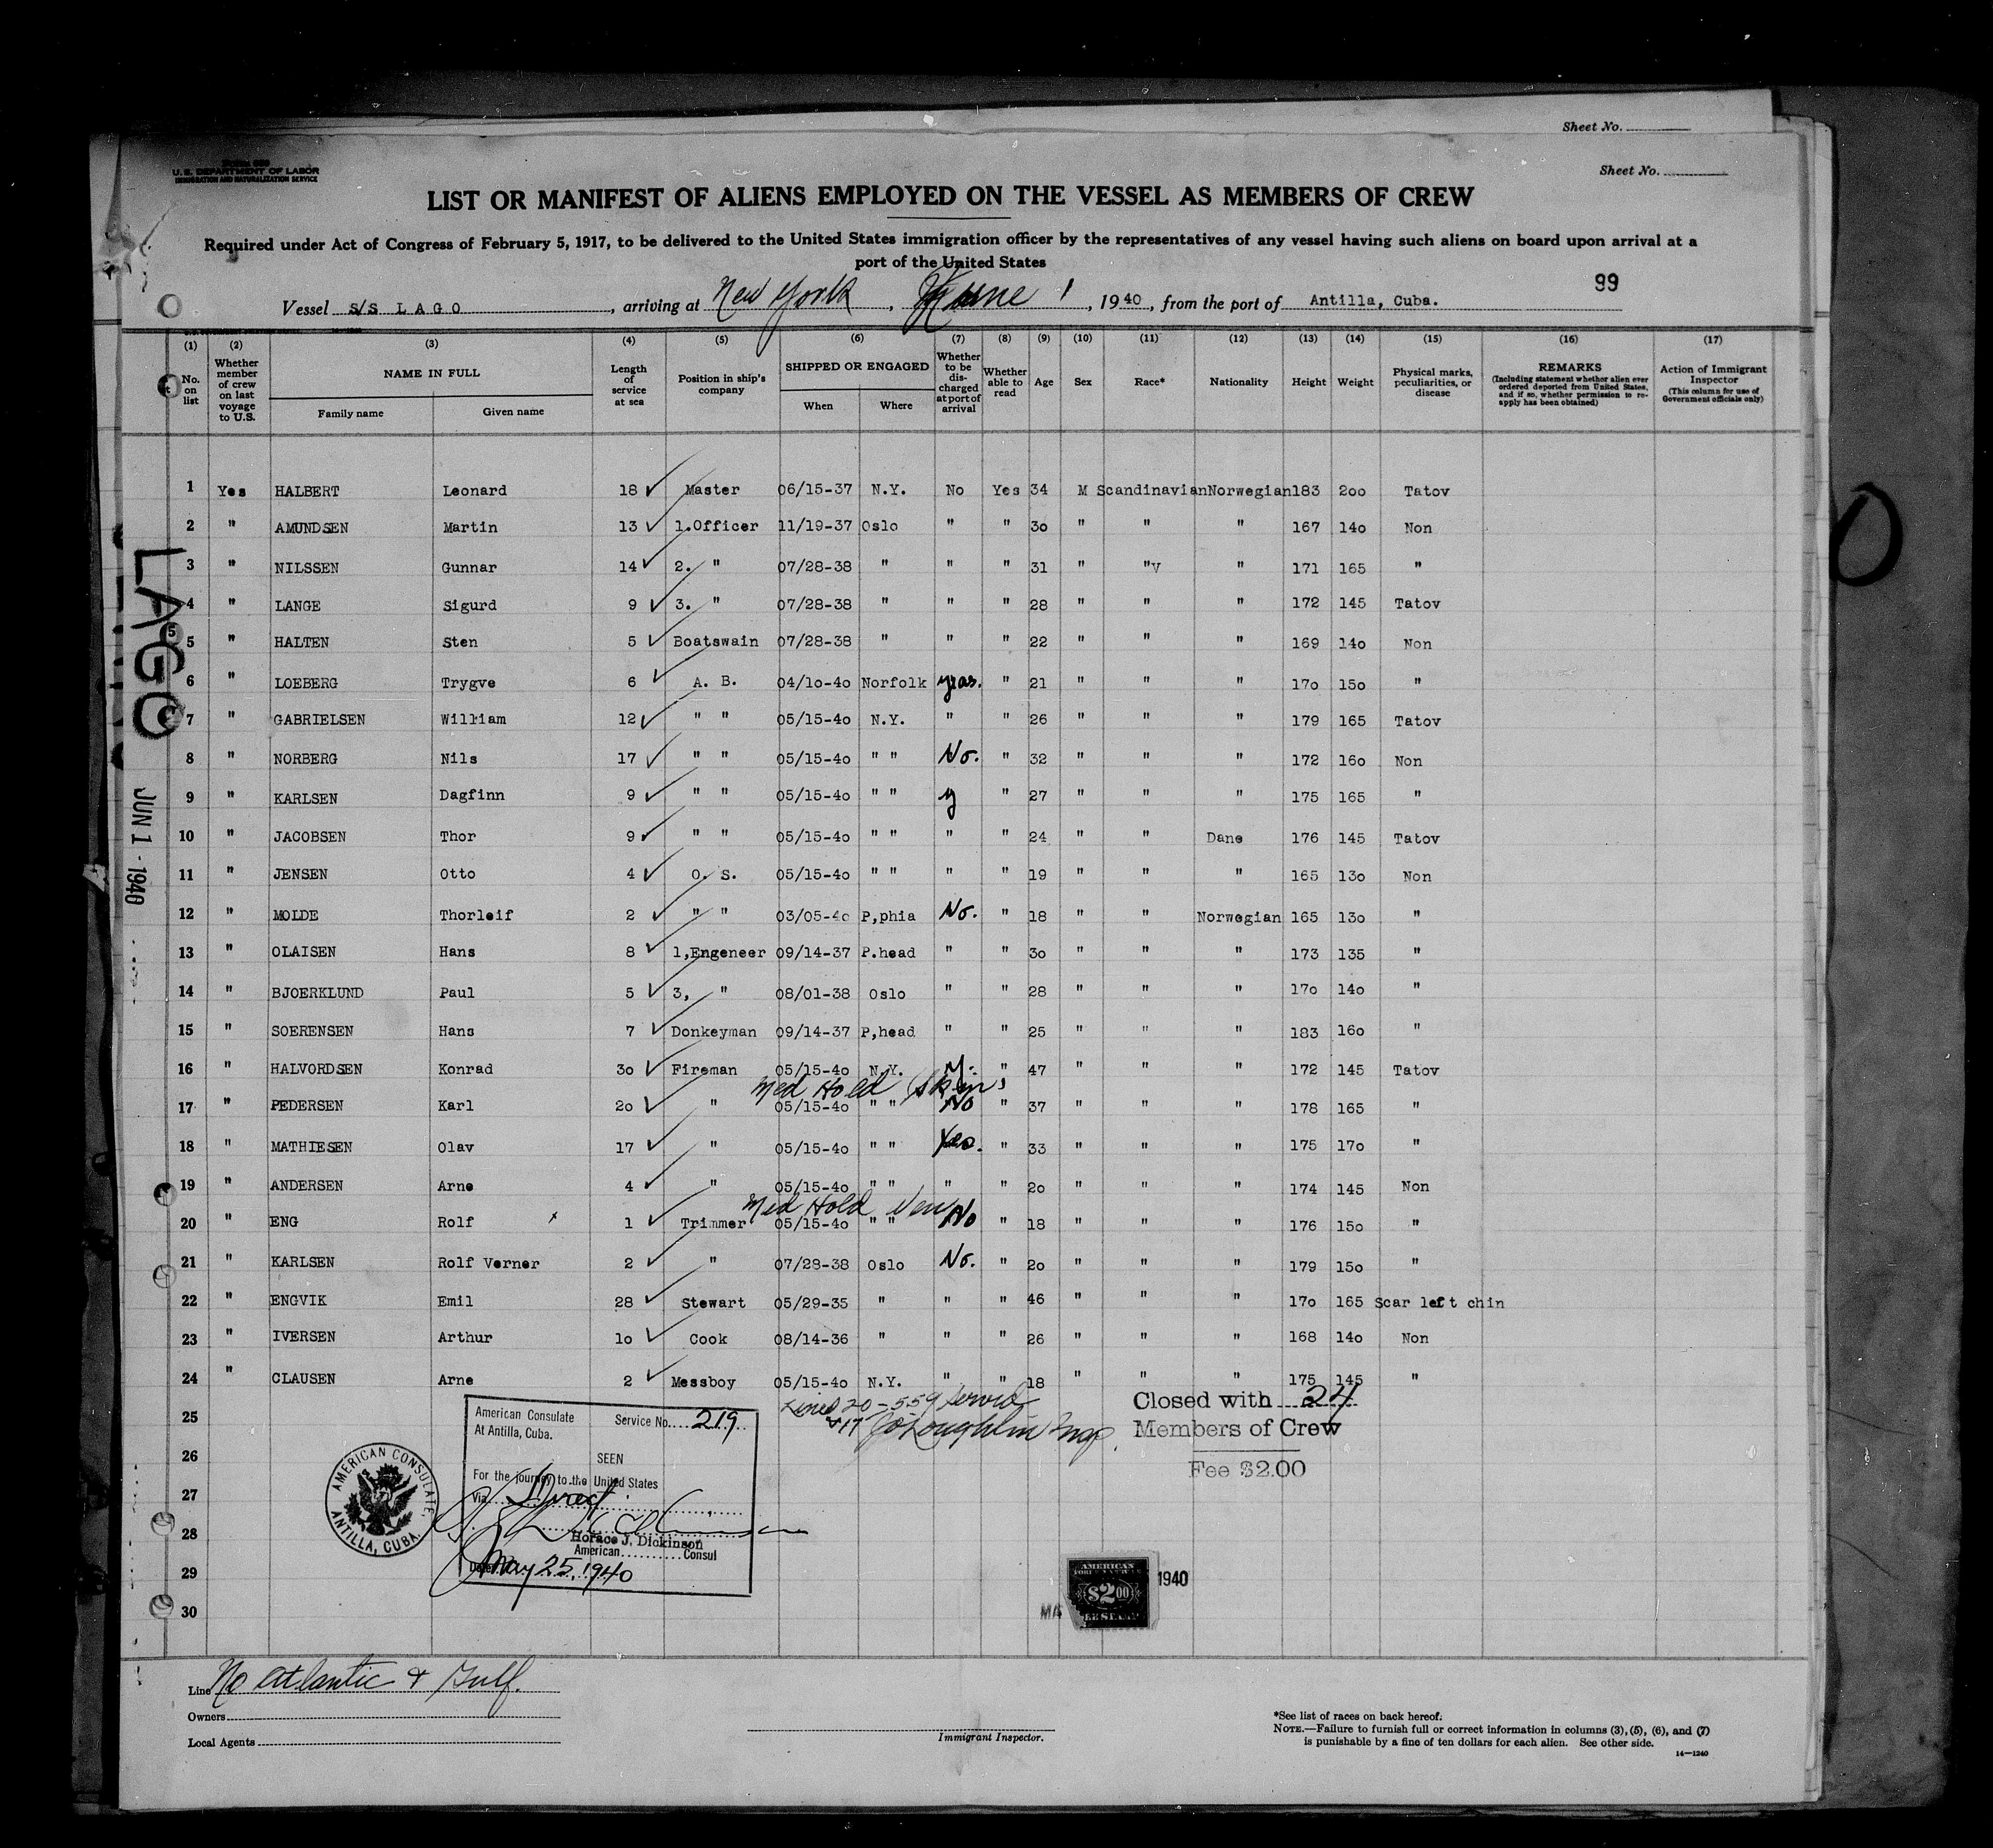 Sheet No.
Sheet No.
U. S. DEPARTMENT OF LABOR
IMMIGRATION AND NATURALIZATION SERVICE
LIST OR MANIFEST OF ALIENS EMPLOYED ON THE VESSEL AS MEMBERS OF CREW
Required under Act of Congress of February 5, 1917, to be delivered to the United States immigration officer by the representatives of any vessel having such aliens on board upon arrival at a
port of the United States
99
Vessel S/S LAGO, arriving at New York, June 1, 1940, from the port of Antilla, Cuba.
(1) (2) (3) (4) (5) (6) (7) (8) (9) (10) (11) (12) (13) (14) (15) (16) (17)
No. on list
Whether member of crew on last voyage to U.S.
NAME IN FULL
Family name Given name
Length of service at sea
Position in ship's company
SHIPPED OR ENGAGED
When Where
Whether to be discharged at port of arrival
Whether able to read
Age
Sex
Race*
Nationality
Height
Weight
Physical marks, peculiarities, or disease
REMARKS
(Including statement whether alien ever ordered deported from United States, and if so, whether permission to re-apply has been obtained)
Action of Immigrant Inspector
(This column for use of Government officials only)
1 Yes HALBERT Leonard 18 ✓ Master 06/15-37 N.Y. No Yes 34 M Scandinavian Norwegian 183 200 Tatov
2 " AMUNDSEN Martin 13 ✓ 1.Officer 11/19-37 Oslo " " 30 " " " 167 140 Non
3 " NILSSEN Gunnar 14 ✓ 2. " 07/28-38 " " " 31 " "V " 171 165 "
4 " LANGE Sigurd 9 ✓ 3. " 07/28-38 " " " 28 " " " 172 145 Tatov
5 " HALTEN Sten 5 ✓ Boatswain 07/28-38 " " " 22 " " " 169 140 Non
6 " LOEBERG Trygve 6 ✓ A. B. 04/10-40 Norfolk " 21 " " " 170 150 "
7 " GABRIELSEN William 12 ✓ " " 05/15-40 N.Y. " " 26 " " " 179 165 Tatov
8 " NORBERG Nils 17 ✓ " " 05/15-40 " " No. " 32 " " " 172 160 Non
9 " KARLSEN Dagfinn 9 ✓ " " 05/15-40 " " y " 27 " " " 175 165 "
10 " JACOBSEN Thor 9 ✓ " " 05/15-40 " " " " 24 " " Dane 176 145 Tatov
11 " JENSEN Otto 4 ✓ O. S. 05/15-40 " " " " 19 " " " 165 130 Non
12 " MOLDE Thorleif 2 ✓ " " 03/05-40 P,phia No. " 18 " " Norwegian 165 130 "
13 " OLAISEN Hans 8 ✓ 1,Engeneer 09/14-37 P.head " " 30 " " " 173 135 "
14 " BJOERKLUND Paul 5 ✓ 3, " 08/01-38 Oslo " " 28 " " " 170 140 "
15 " SOERENSEN Hans 7 ✓ Donkeyman 09/14-37 P,head " " 25 " " " 183 160 "
16 " HALVORDSEN Konrad 30 ✓ Fireman 05/15-40 N.Y. y. " 47 " " " 172 145 Tatov
Med Hold (Skin)
17 " PEDERSEN Karl 20 ✓ " 05/15-40 " " No " 37 " " " 178 165 "
18 " MATHIESEN Olav 17 ✓ " 05/15-40 " " Yes. " 33 " " " 175 170 "
19 " ANDERSEN Arne 4 ✓ " 05/15-40 " " " " 20 " " " 174 145 Non
Med Hold Ven
20 " ENG Rolf x 1 ✓ Trimmer 05/15-40 " " No " 18 " " " 176 150 "
21 " KARLSEN Rolf Verner 2 ✓ " 07/28-38 Oslo No. " 20 " " " 179 150 "
22 " ENGVIK Emil 28 ✓ Stewart 05/29-35 " " " 46 " " " 170 165 Scar left chin
23 " IVERSEN Arthur 10 ✓ Cook 08/14-36 " " " 26 " " " 168 140 Non
24 " CLAUSEN Arne 2 ✓ Messboy 05/15-40 N.Y. " " 18 " " " 175 145 "
25
26
27
28
29
30
Lines 20 - 559 Served
+17 Insp.
Closed with 24
Members of Crew
Fee $2.00
American Consulate
At Antilla, Cuba.
Service No. 219
SEEN
For the journey to the United States
Via Direct
Horace J. Dickinson
American Consul
Date May 25, 1940
AMERICAN CONSULATE, ANTILLA, CUBA.
AMERICAN
$2.00
FEE STAMP
1940
LAGO
JUN 1 - 1940
Line No Atlantic & Gulf.
Owners
Local Agents
Immigrant Inspector.
*See list of races on back hereof.
NOTE.—Failure to furnish full or correct information in columns (3), (5), (6), and (7)
is punishable by a fine of ten dollars for each alien. See other side.
14—1240